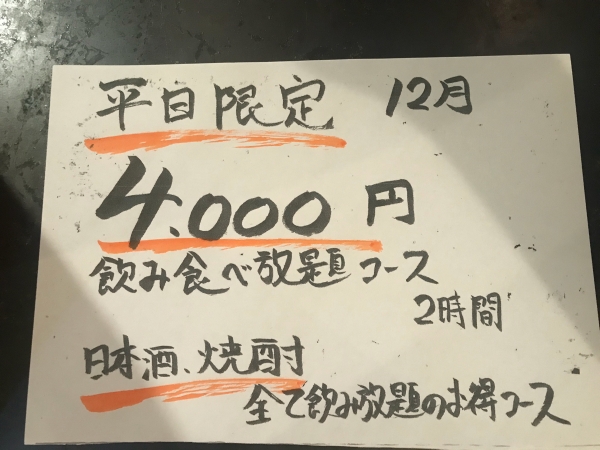 平日限定 12月
4.000円
飲み食べ放題コース
2時間
日本酒、焼酎
全て飲み放題のお得コース